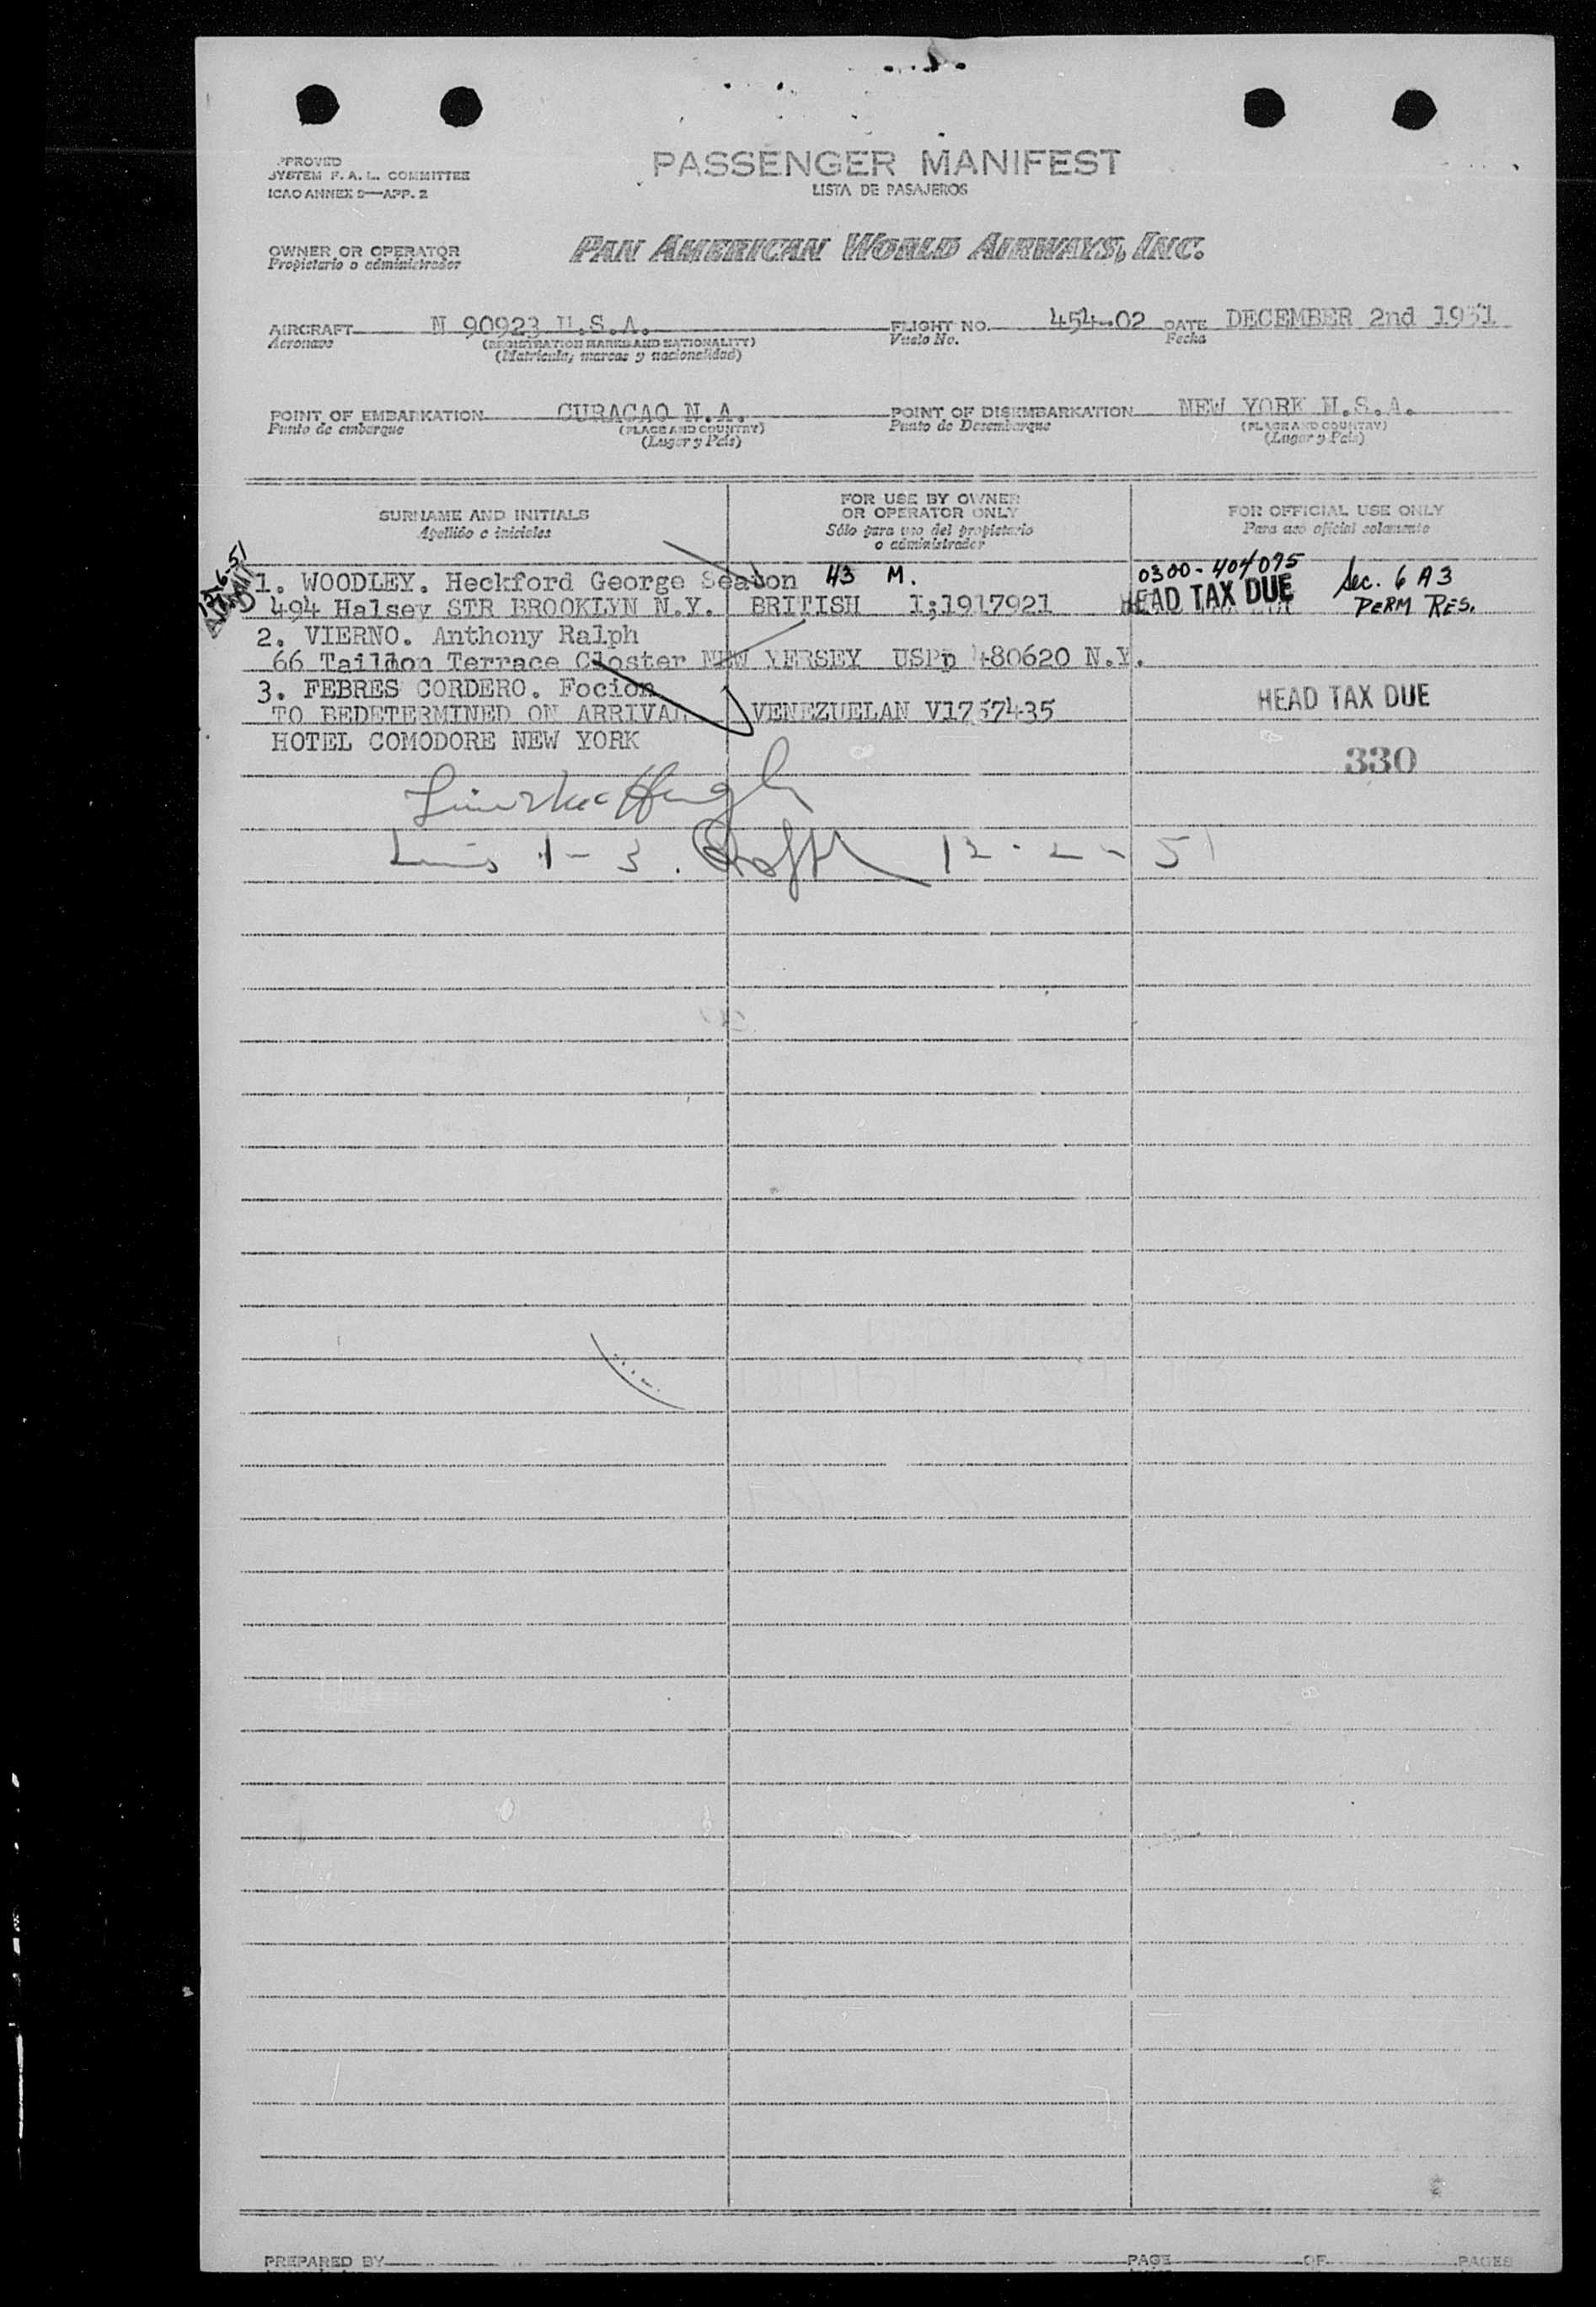 PPROVED
SYSTEM F. A. L. COMMITTEE
ICAO ANNEX 9—APP. 2
PASSENGER MANIFEST
LISTA DE PASAJEROS
OWNER OR OPERATOR
Propietario o administrador
PAN AMERICAN WORLD AIRWAYS, INC.
AIRCRAFT N 90923 U.S.A. FLIGHT NO. 454-02 DATE DECEMBER 2nd 1951
Aeronave (REGISTRATION MARKS AND NATIONALITY) Vuelo No. Fecha
(Matrícula, marcas y nacionalidad)
POINT OF EMBARKATION CURACAO N.A. POINT OF DISEMBARKATION NEW YORK U.S.A.
Punto de embarque (PLACE AND COUNTRY) Punto de Desembarque (PLACE AND COUNTRY)
(Lugar y País) (Lugar y País)
SURNAME AND INITIALS
Apellido e iniciales
FOR USE BY OWNER
OR OPERATOR ONLY
Sólo para uso del propietario
o administrador
FOR OFFICIAL USE ONLY
Para uso oficial solamente
1. WOODLEY. Heckford George Seaton 43 M. 0300-404075 Sec. 6 A 3
494 Halsey STR BROOKLYN N.Y. BRITISH I;1917921 HEAD TAX DUE PERM RES.
2. VIERNO. Anthony Ralph
66 Taillon Terrace Closter NEW YERSEY USPp 480620 N.Y.
3. FEBRES CORDERO. Focion
TO BEDETERMINED ON ARRIVAL VENEZUELAN V1757435 HEAD TAX DUE
HOTEL COMODORE NEW YORK
330
1-3. 12-2-51
PREPARED BY PAGE OF PAGES